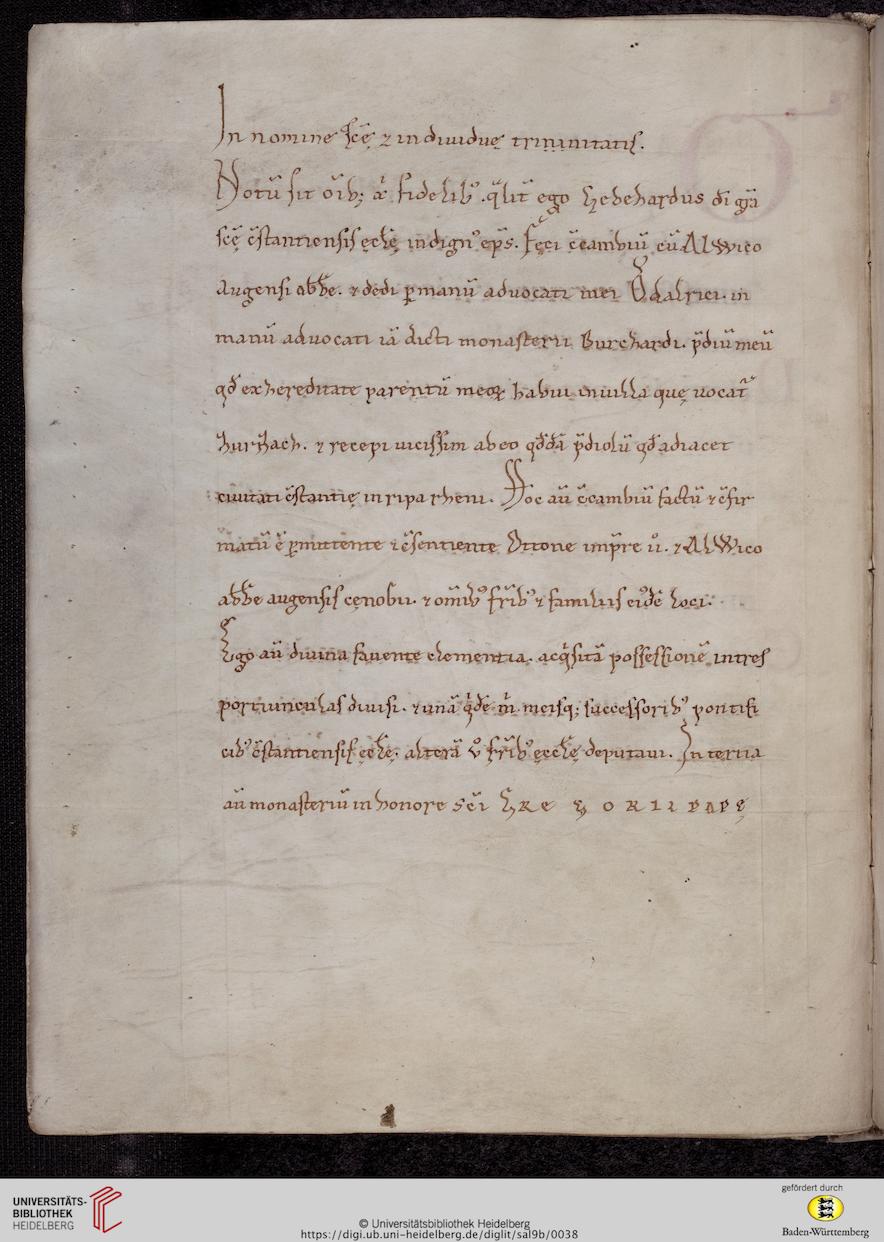 In nomine scę̄ & individuę trininitatis.
Notū sit oīb; xp̄i fidelib' . qlit̄ ego Gebehardus dī grā
scę̄ c̄stantiensis ęcl̄ę indign' ep̄s. Feci c̄cambiū cū AlWico
Augensi abb̄e. & dedi ꝑ manū advocati mei Ȯdalrici. in
manū advocati iā dicti monasterii Burchardi. p̄diū meū
qd̄ ex hereditate parentū meoꝝ habui in uilla quę uocat̄
Zurzach. & recepi uicissim ab eo qd̄dā p̄diolū qd̄ adiacet
ciuitati c̄stantię in ripa rheni. Hoc aū c̄cambiū factū & c̄fir
matū ē ꝑmittente & c̄sentiente Ottone imp̄re u̇. & AlWico
abb̄e augensis cęnobii. & om̄ib' fr̄ib' & familiis ei'dē loci.
Ego aū divina fauente clementia. acq̇sitā possessionē in tres
portiunculas divisi. & unā q̇dē ṁ meisq; successorib' pontifi
cib' c̄stantiensis ęcl̄ę. alterā v° fr̄ib' ęccl̄ę deputavi. In tertia
aū monasteriū in honore sc̄i GREGORII PAPĘ
UNIVERSITÄTS-
BIBLIOTHEK
HEIDELBERG
© Universitätsbibliothek Heidelberg
https://digi.ub.uni-heidelberg.de/diglit/sal9b/0038
gefördert durch
Baden-Württemberg